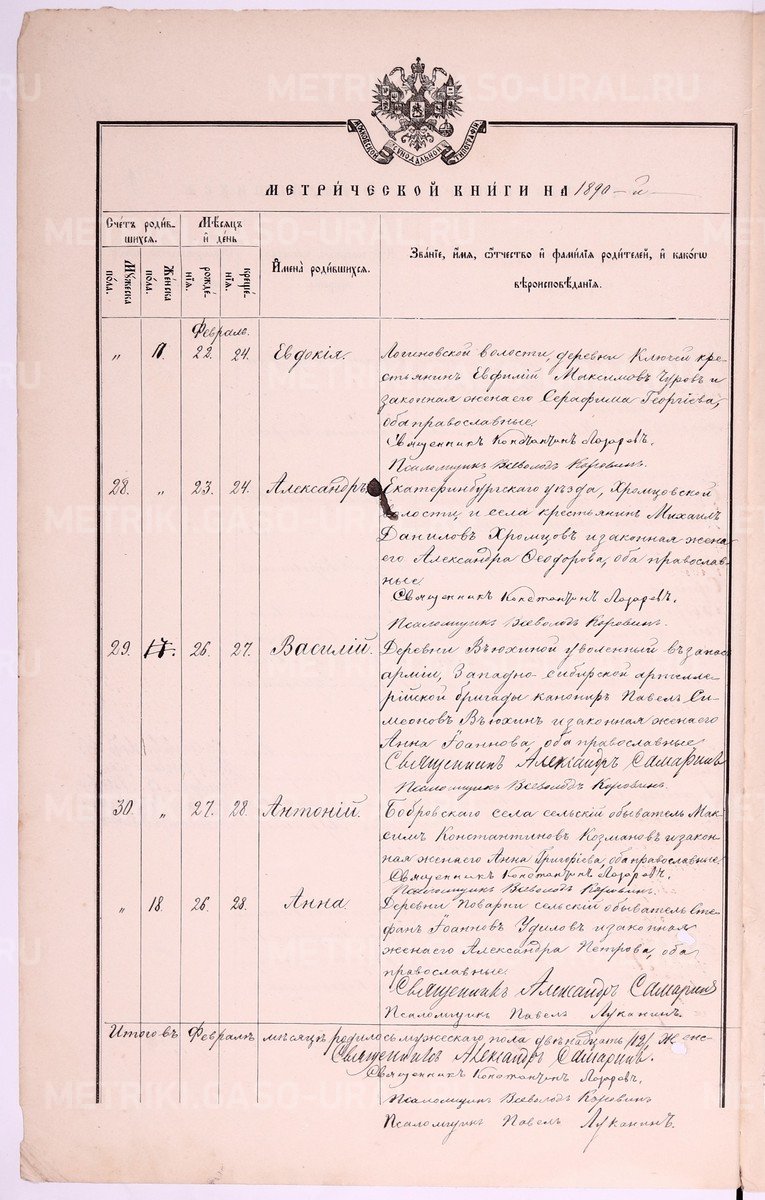 МОСКОВСКОЙ СѴНОДАЛЬНОЙ ТИПОГРАФІИ
МЕТРИ́ЧЕСКОЙ КНИ́ГИ НА 1890-й
Сче́тъ роди́в-
шихся.
Мѣ́сяцъ
и҆ де́нь
И҆мена̀ роди́вшихся.
Зва́нїе, и҆́мя, ѻ҆́тчество и҆ фами́лїя роди́телей, и҆ како́гѡ
вѣроисповѣ́данїя.
Мꙋ́жеска по́ла.
Же́нска по́ла.
рожде́нїя.
креще́нїя.
Февраль.
„ 17. 22. 24. Евдокія. Логиновской волости, деревни Ключей кре-
стьянинъ Евфимій Максимовъ Чуровъ и
законная жена его Серафима Георгіева,
оба православные.
Священникъ Константинъ Лазаревъ.
Псаломщикъ Всеволодъ Коровинъ.
28. „ 23. 24. Александръ Екатеринбургскаго уѣзда, Хромцовской
волости и села крестьянинъ Михаилъ
Даниловъ Хромцовъ и законная жена
его Александра Ѳеодорова, оба православ-
ные.
Священникъ Константинъ Лазаревъ.
Псаломщикъ Всеволодъ Коровинъ.
29. 17. 26. 27. Василій. Деревни Вьюхиной уволенный въ запас
арміи, Западно-сибирской артилле-
рійской бригады канониръ Павелъ Си-
меоновъ Вьюхинъ и законная жена его
Анна Іоаннова, оба православные.
Священникъ Александръ Самаринъ
Псаломщикъ Всеволодъ Коровинъ.
30. „ 27. 28. Антоній. Бобровскаго села сельскій обыватель Мак-
симъ Константиновъ Козмановъ и закон-
ная жена его Анна Григоріева, оба православные
Священникъ Константинъ Лазаревъ.
Псаломщикъ Всеволодъ Коровинъ.
„ 18. 26. 28. Анна. Деревни Поварни сельскій обыватель Сте-
фанъ Іоанновъ Удиловъ и законная
жена его Александра Петрова, оба
православные.
Священникъ Александръ Самаринъ
Псаломщикъ Павелъ Луканинъ.
Итого въ Февралѣ мѣсяцѣ родилось мужескаго пола двѣнадцать /12/, женс-
Священникъ Александръ Самаринъ.
Священникъ Константинъ Лазаревъ.
Псаломщикъ Всеволодъ Коровинъ
Псаломщикъ Павелъ Луканинъ.